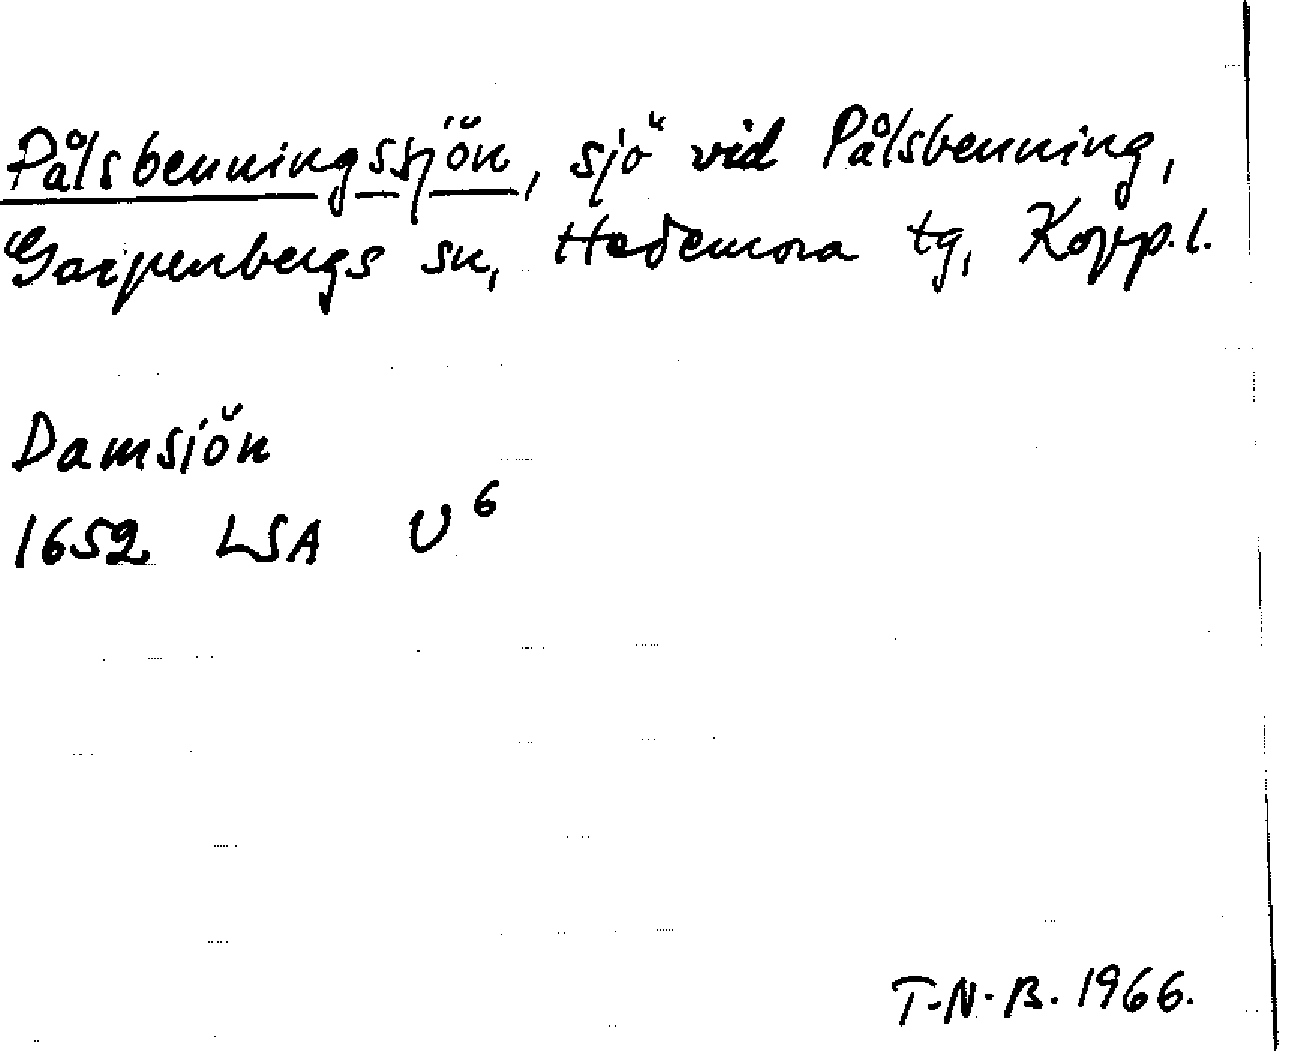 Pålsbenningssjön, sjö vid Pålsbenning,
Garpenbergs sn, Hedemora tg, Kopp.l.
Damsiön
1652 LSA U⁶
T-N-B. 1966.